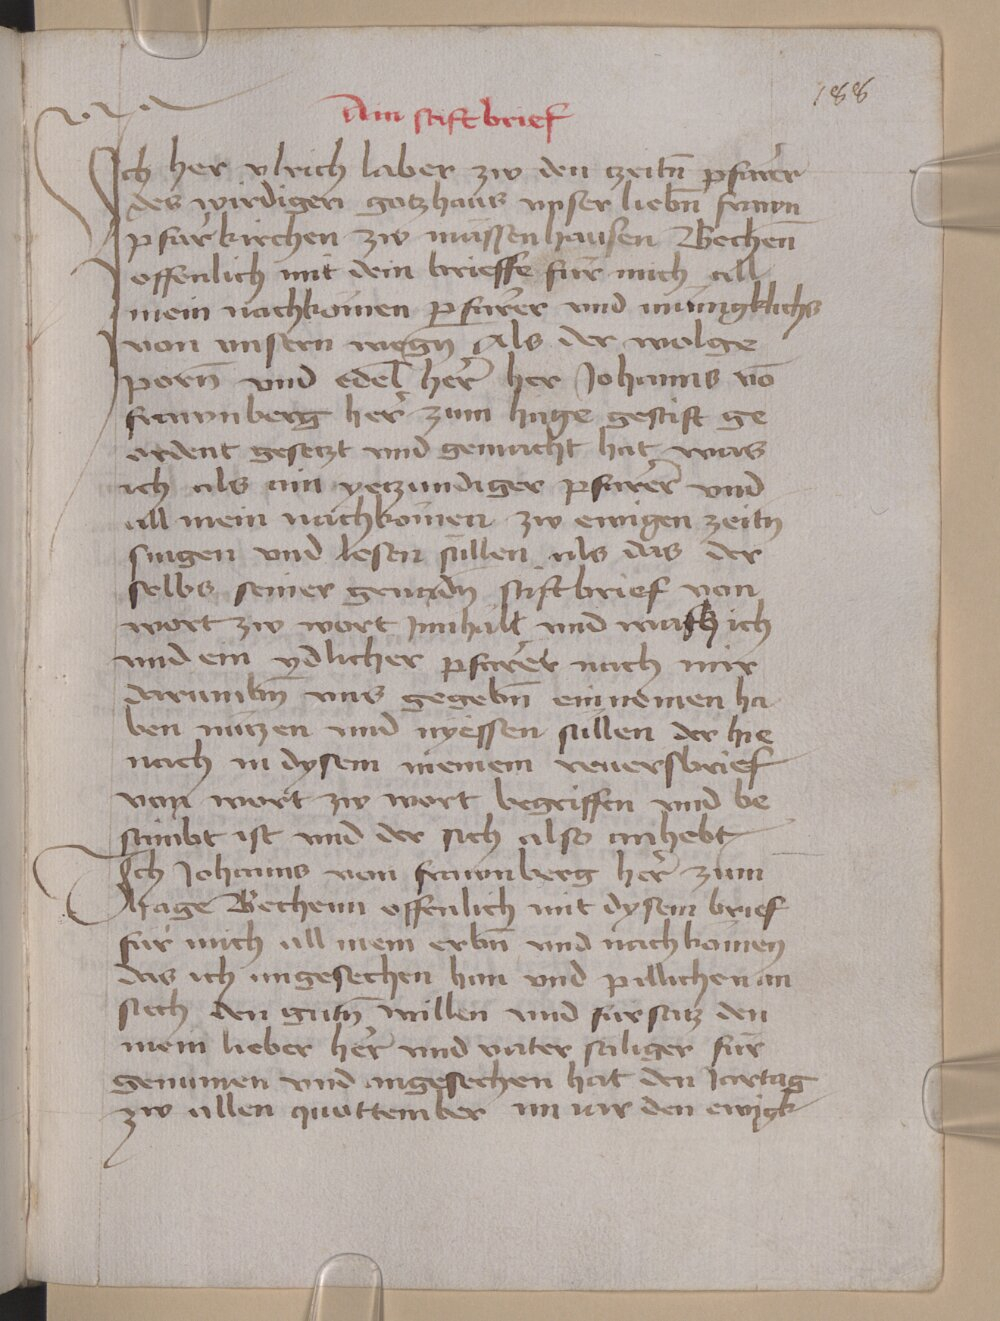 188
Ain stiftbrief
Ich her vlrich laber zw den tzeitñ pfarrer
des wirdigen gotzhaus vnser liebñ frawn
pfarkirchen zw mässenhausen Bechen̄
offenlich mit dem brieffe für mich all
mein nachkömen pfarrer vnd mänigklichs
von vnsern wegñ Als der wolge
porñ vnd edel her̃ her Johanns võ
frawnberg her̃ zum hage gestift ge
ordent gesetzt vnd gemacht hat was
ich als ain yetzundiger pfarrer̃ vnd
all mein nachkömen zw ewigen zeitñ
singen vnd lesen süllen als das der
selbs seiner genadñ stiftbrief von
wort zw wort Innhält vnd was ich
vnd ein ydlicher pfarrer nach mir
darumbñ vns gegebñ einnemen ha
ben nutzen vnd nyessen süllen der hie
nach in dysem meinem reuersbrief
von wort zw wort begriffen vnd be
stimbt ist vnd der sich also anhebt
Ich Johanns von frawnberg her̃ zum
Hage Bechenn offenlich mit dysem brief
für mich all mein erbñ vnd nachkömen
das ich angesechen han vnd pillichen an
siech den gutñ willen vnd fürsatz den
mein lieber her̃ vnd vater säliger für
genumen vnd angesechen hat den Jartag
zw allen quottember im iar den ewigk